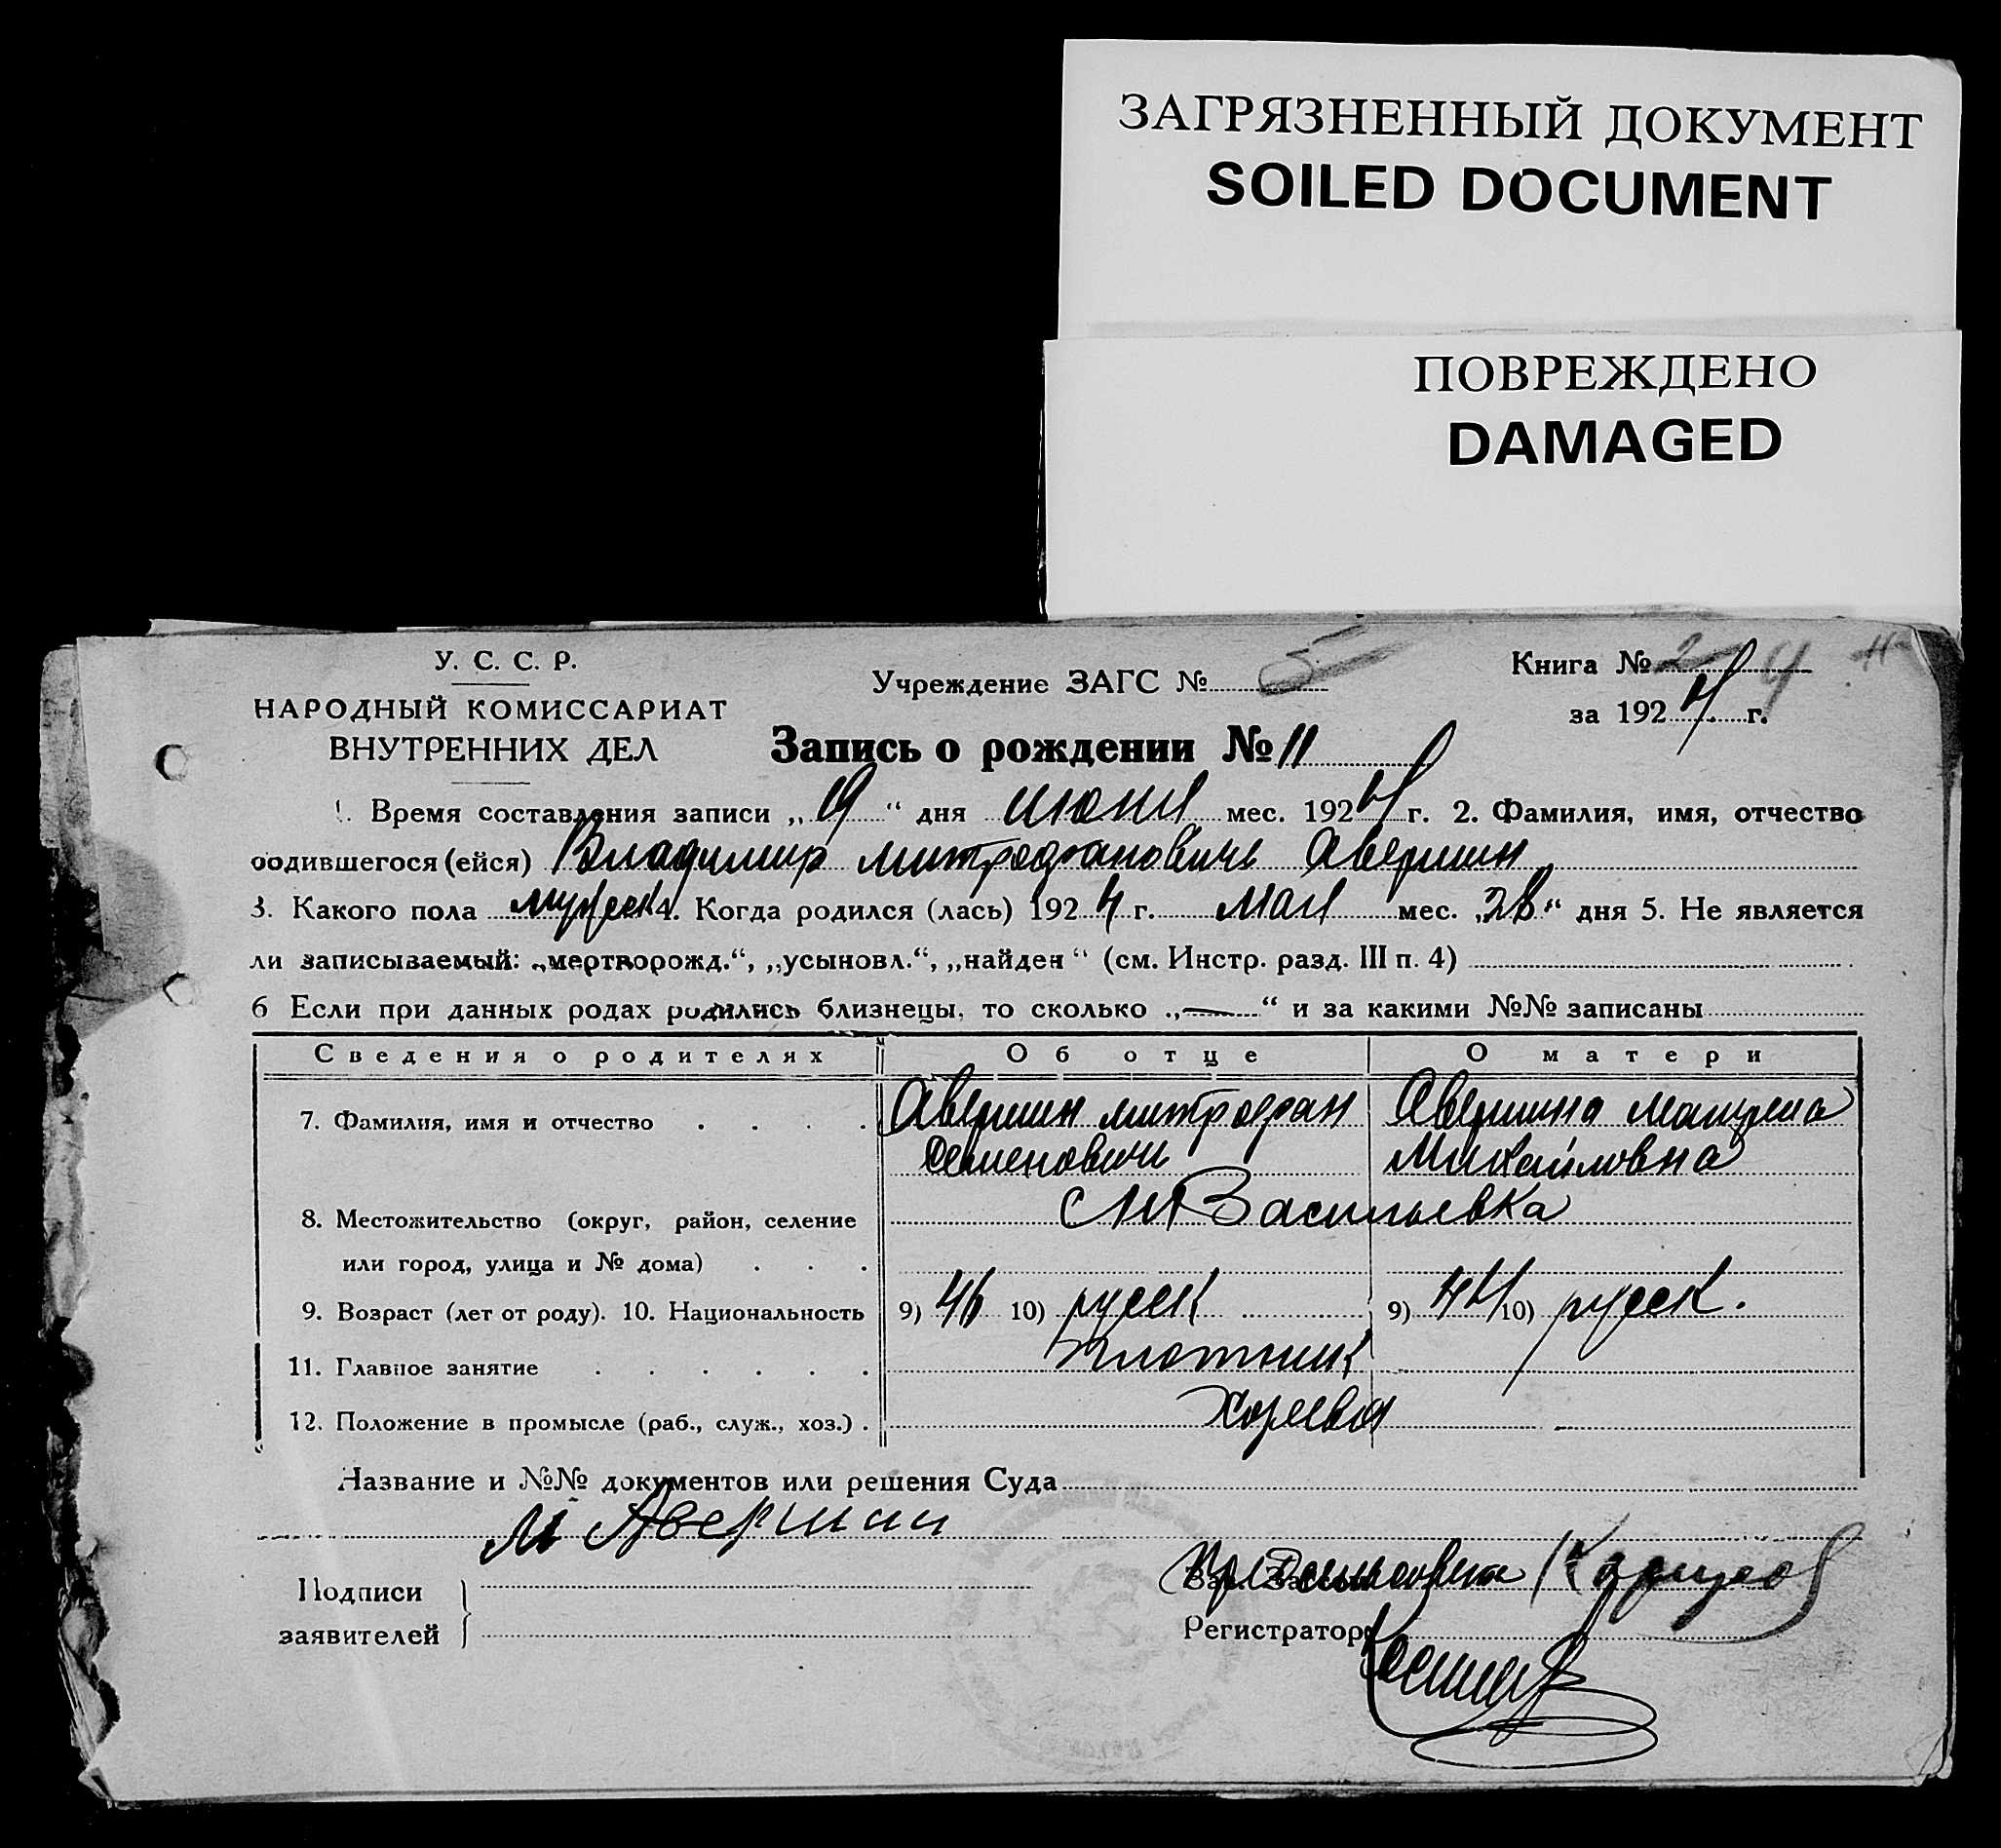 ЗАГРЯЗНЕННЫЙ ДОКУМЕНТ
SOILED DOCUMENT
ПОВРЕЖДЕНО
DAMAGED
У. С. С. Р.
НАРОДНЫЙ КОМИССАРИАТ
ВНУТРЕННИХ ДЕЛ
Учреждение ЗАГС № 5
Книга № 2
за 1924 г.
Запись о рождении № 11
1. Время составления записи „19“ дня июня мес. 1924 г. 2. Фамилия, имя, отчество
родившегося (ейся) Владимир Митрофановичь Авершин
3. Какого пола мужск 4. Когда родился (лась) 1924 г. мая мес. „28“ дня 5. Не является
ли записываемый: „мертворожд.“, „усыновл.“, „найден“ (см. Инстр. разд. III п. 4)
6 Если при данных родах родились близнецы, то сколько „—“ и за какими №№ записаны
Сведения о родителях Об отце О матери
7. Фамилия, имя и отчество Авершин Митрофан Авершина Матрена
Семеновичь Михайловна
8. Местожительство (округ, район, селение Васильевка
или город, улица и № дома)
9. Возраст (лет от роду). 10. Национальность 9) 46 10) русск 9) 44 10) русск.
11. Главное занятие Плотник
12. Положение в промысле (раб., служ., хоз.)
Название и №№ документов или решения Суда
М Авершин
Подписи
заявителей
Регистратор